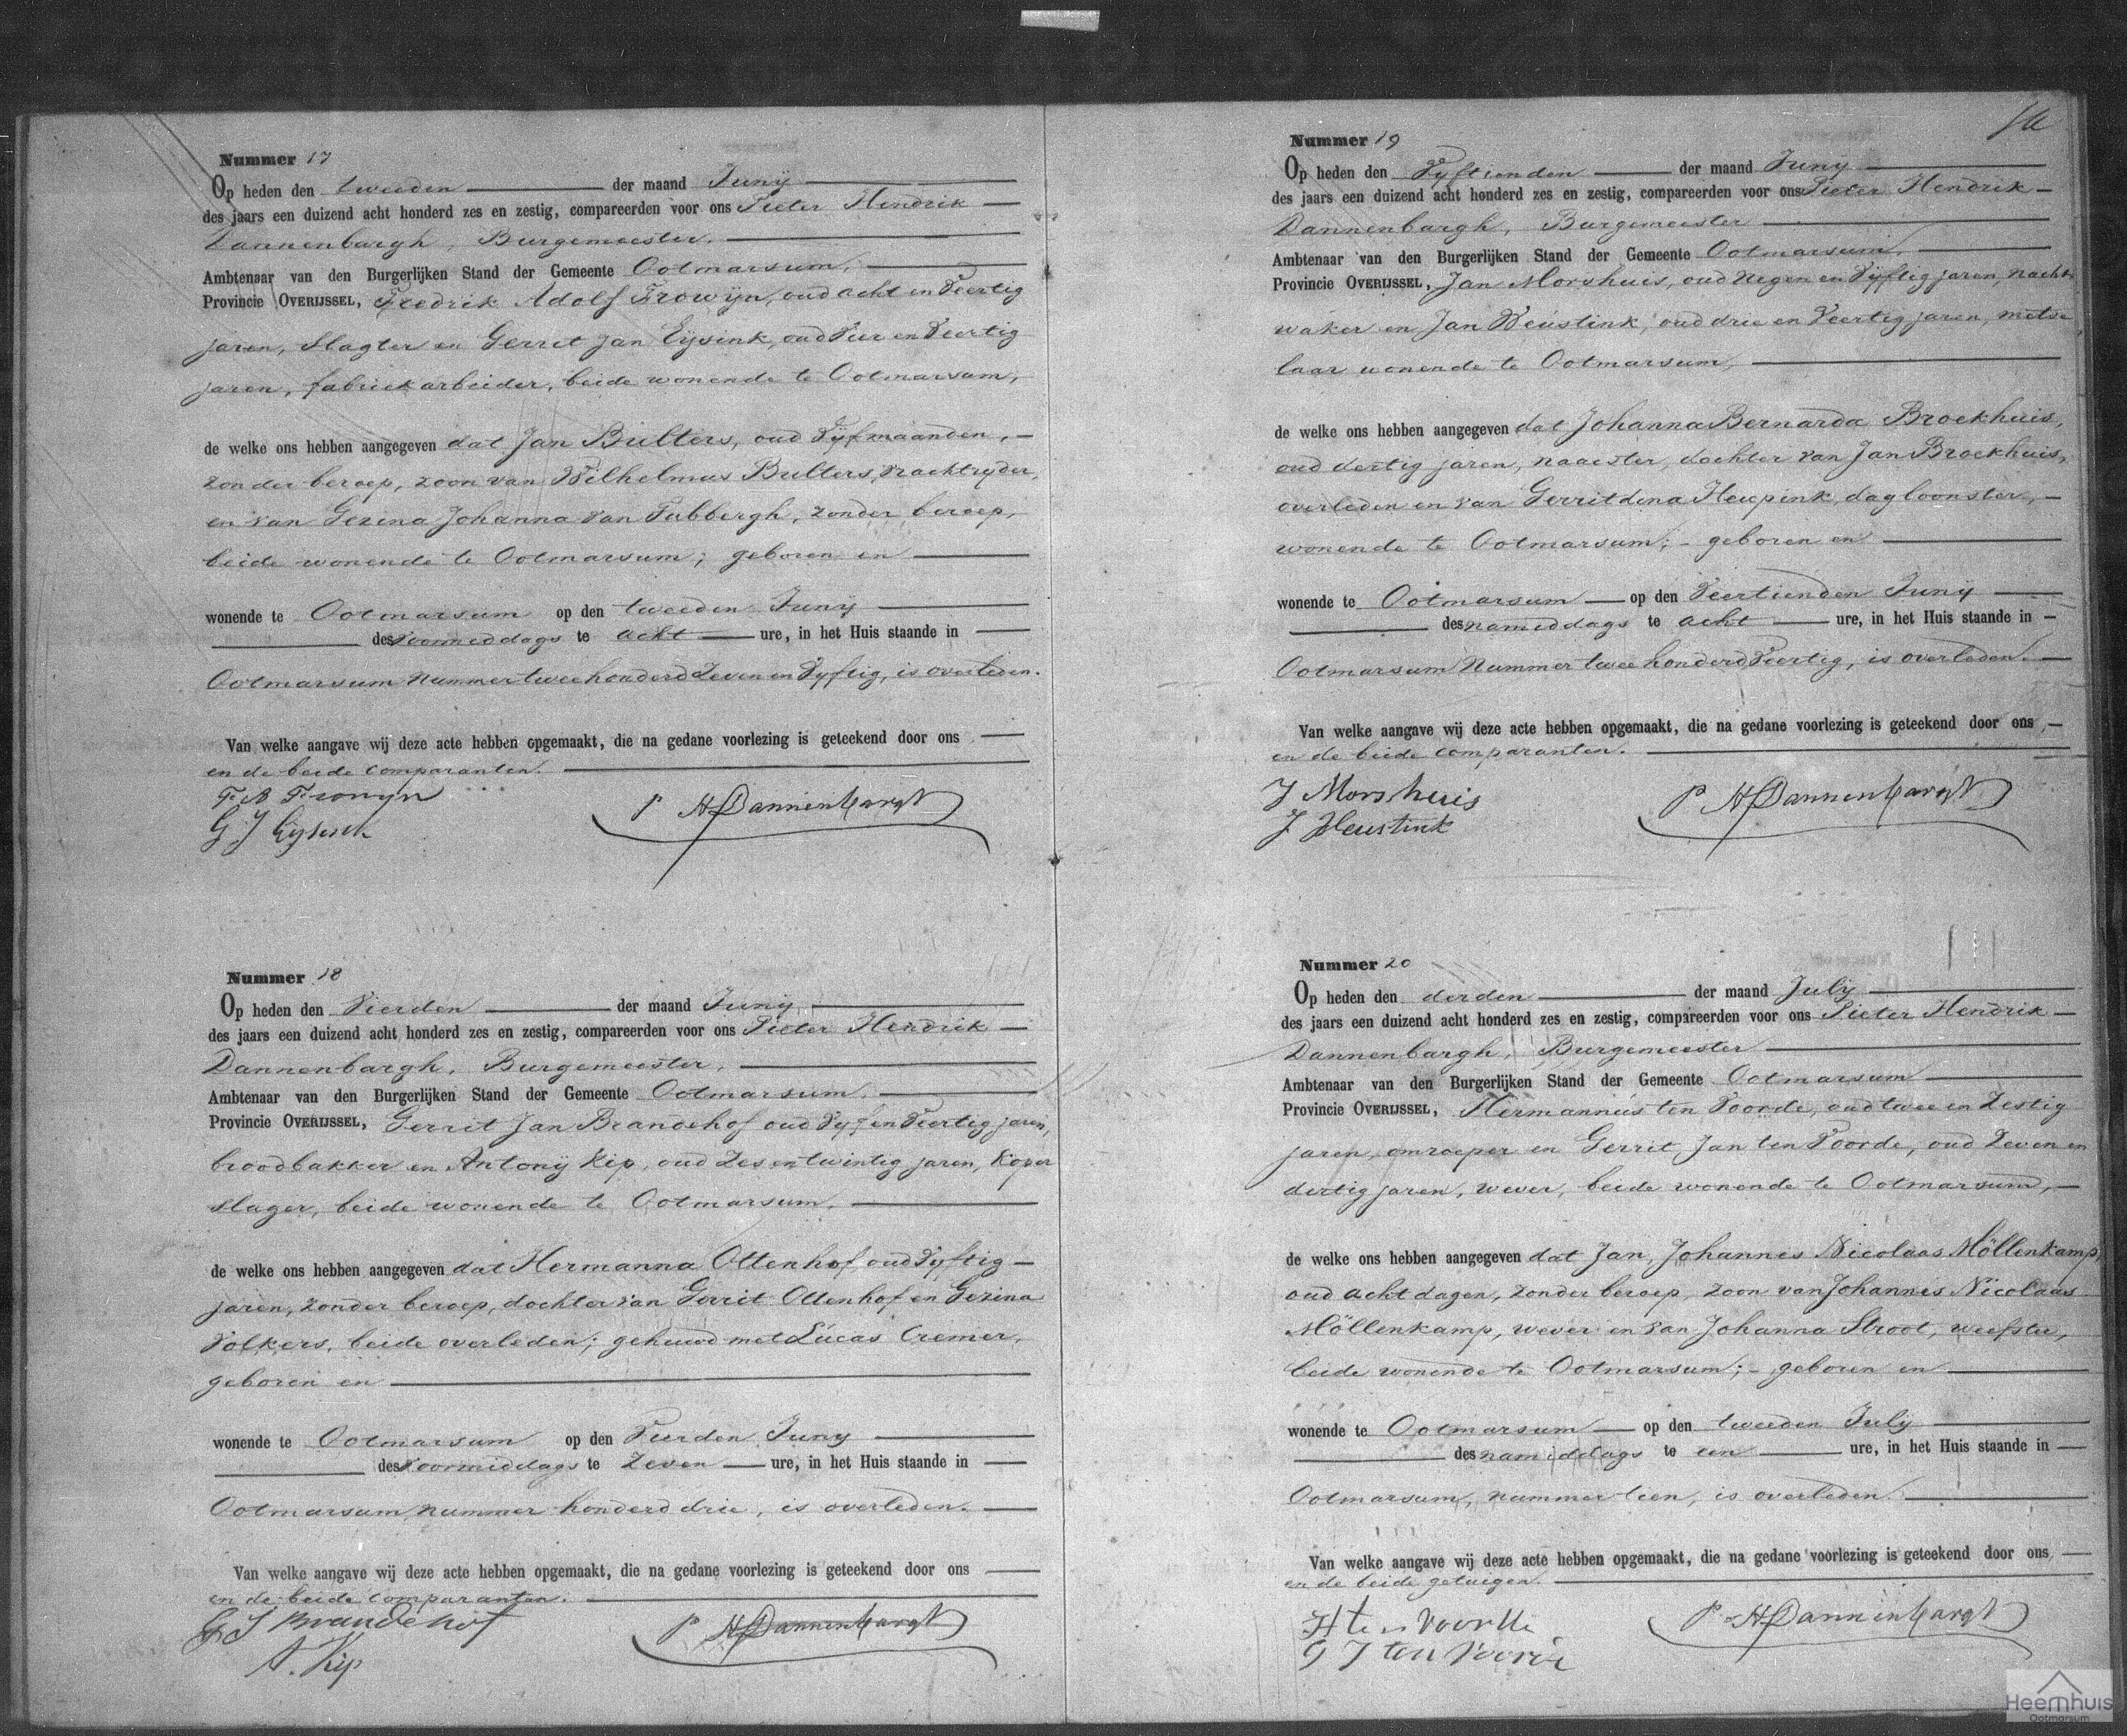 Nummer 17
Op heden den tweeden der maand Junij
des jaars een duizend acht honderd zes en zestig, compareerden voor ons Pieter Hendrik
Dannenbargh, Burgemeester.
Ambtenaar van den Burgerlijken Stand der Gemeente Ootmarsum,
Provincie OVERIJSSEL, Fredrik Adolf Frowijn, oud acht en Veertig
jaren, slagter en Gerret Jan Eijsink, oud Vier en Veertig
jaren, fabriekarbeider, beide wonende te Ootmarsum,
de welke ons hebben aangegeven dat Jan Bulters, oud Vijf maanden,
zonder beroep, zoon van Wilhelmus Bulters, Vrachtrijder,
en van Gezina Johanna van Tubbergh, zonder beroep,
beide wonende te Ootmarsum; geboren en
wonende te Ootmarsum op den tweeden Junij
des voormiddags te acht ure, in het Huis staande in
Ootmarsum nummer twee honderd Zeven en Vyftig, is overleden.
Van welke aangave wij deze acte hebben opgemaakt, die na gedane voorlezing is geteekend door ons
en de beide comparanten.
F. A Frowijn
G J Eijsink
P H Dannenbargh
Nummer 18
Op heden den Vierden der maand Junij
des jaars een duizend acht honderd zes en zestig, compareerden voor ons Pieter Hendrik
Dannenbargh, Burgemeester,
Ambtenaar van den Burgerlijken Stand der Gemeente Ootmarsum.
Provincie OVERIJSSEL, Gerrit Jan Brandehof oud Vyf en Veertig jaren,
broodbakker en Antonij Kip, oud Zes en twintig jaren, Koper
slager, beide wonende te Ootmarsum.
de welke ons hebben aangegeven dat Hermanna Ottenhof oud Vyftig
jaren, zonder beroep, dochter van Gerrit Ottenhof en Gezina
Volkers, beide overleden; gehuwd met Lucas Cremer,
geboren en
wonende te Ootmarsum op den Vierden Juny
des voormiddags te Zeven ure, in het Huis staande in
Ootmarsum, nummer honderd drie, is overleden.
Van welke aangave wij deze acte hebben opgemaakt, die na gedane voorlezing is geteekend door ons
en de beide comparanten.
G J Brandehof
A. Kip
P H Dannenbargh
Nummer 19
Op heden den Vyftienden der maand Juny
des jaars een duizend acht honderd zes en zestig, compareerden voor ons Pieter Hendrik
Dannenbargh, Burgemeester
Ambtenaar van den Burgerlijken Stand der Gemeente Ootmarsum,
Provincie OVERIJSSEL, Jan Morshuis, oud Negen en Vyftig jaren, nacht
waker en Jan Heustink, oud drie en Veertig jaren, metse
laar wonende te Ootmarsum,
de welke ons hebben aangegeven dat Johanna Bernarda Broekhuis,
oud dertig jaren, naaister, dochter van Jan Broekhuis,
overleden en van Gerritdina Heupink, dagloonster,
wonende te Ootmarsum; - geboren en
wonende te Ootmarsum op den Veertienden Junij
des namiddags te acht ure, in het Huis staande in
Ootmarsum Nummer twee honderd Veertig, is overleden.
Van welke aangave wij deze acte hebben opgemaakt, die na gedane voorlezing is geteekend door ons
en de beide comparanten.
J Morshuis
J Heustink
P H Dannenbargh
Nummer 20
Op heden den derden der maand July
des jaars een duizend acht honderd zes en zestig, compareerden voor ons Pieter Hendrik
Dannenbargh, Burgemeester
Ambtenaar van den Burgerlijken Stand der Gemeente Ootmarsum
Provincie OVERIJSSEL, Hermannus ten Voorde, oud twee en Zestig
jaren, omroeper en Gerrit Jan ten Voorde, oud Zeven en
dertig jaren, wever, beide wonende te Ootmarsum,
de welke ons hebben aangegeven dat Jan, Johannes Nicolaas Möllenkamp,
oud acht dagen, zonder beroep, zoon van Johannis Nicolaas
Möllenkamp, wever en van Johanna Stroot, weefster,
beide wonende te Ootmarsum; - geboren en
wonende te Ootmarsum op den tweeden July
des namiddags te een ure, in het Huis staande in
Ootmarsum, nummer tien, is overleden.
Van welke aangave wij deze acte hebben opgemaakt, die na gedane voorlezing is geteekend door ons
en de beide getuigen.
H ten Voorde
G J ten Voorde
P H Dannenbargh
Heemhuis
Ootmarsum